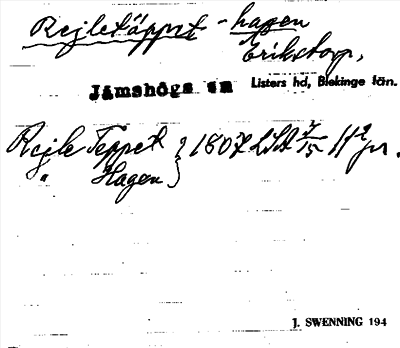 Rejletäppet - hagen
Erikstorp,
Jämshögs sn Listers hd, Blekinge län.
Rejle Teppet } 1807 LSA 7/15 112
" Hagen
J. SWENNING 194